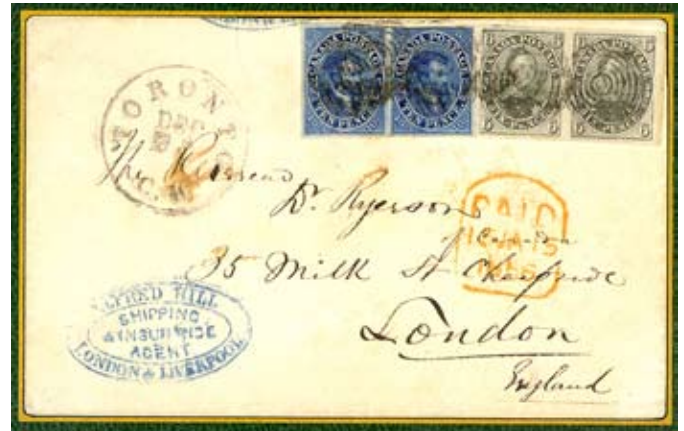 CANADA POSTAGE
TEN PENCE
CANADA POSTAGE
TEN PENCE
6 CANADA POSTAGE 6
6 SIX PENCE 6
CANADA POSTAGE 6
SIX PENCE 6
TORONTO
DEC
U.C.
Reverend
Dr. Ryerson
of Canada
35 Milk St Cheapside
London
England
PAID
JA 15
ALFRED HILL
SHIPPING
& INSURANCE
AGENT
LONDON & LIVERPOOL